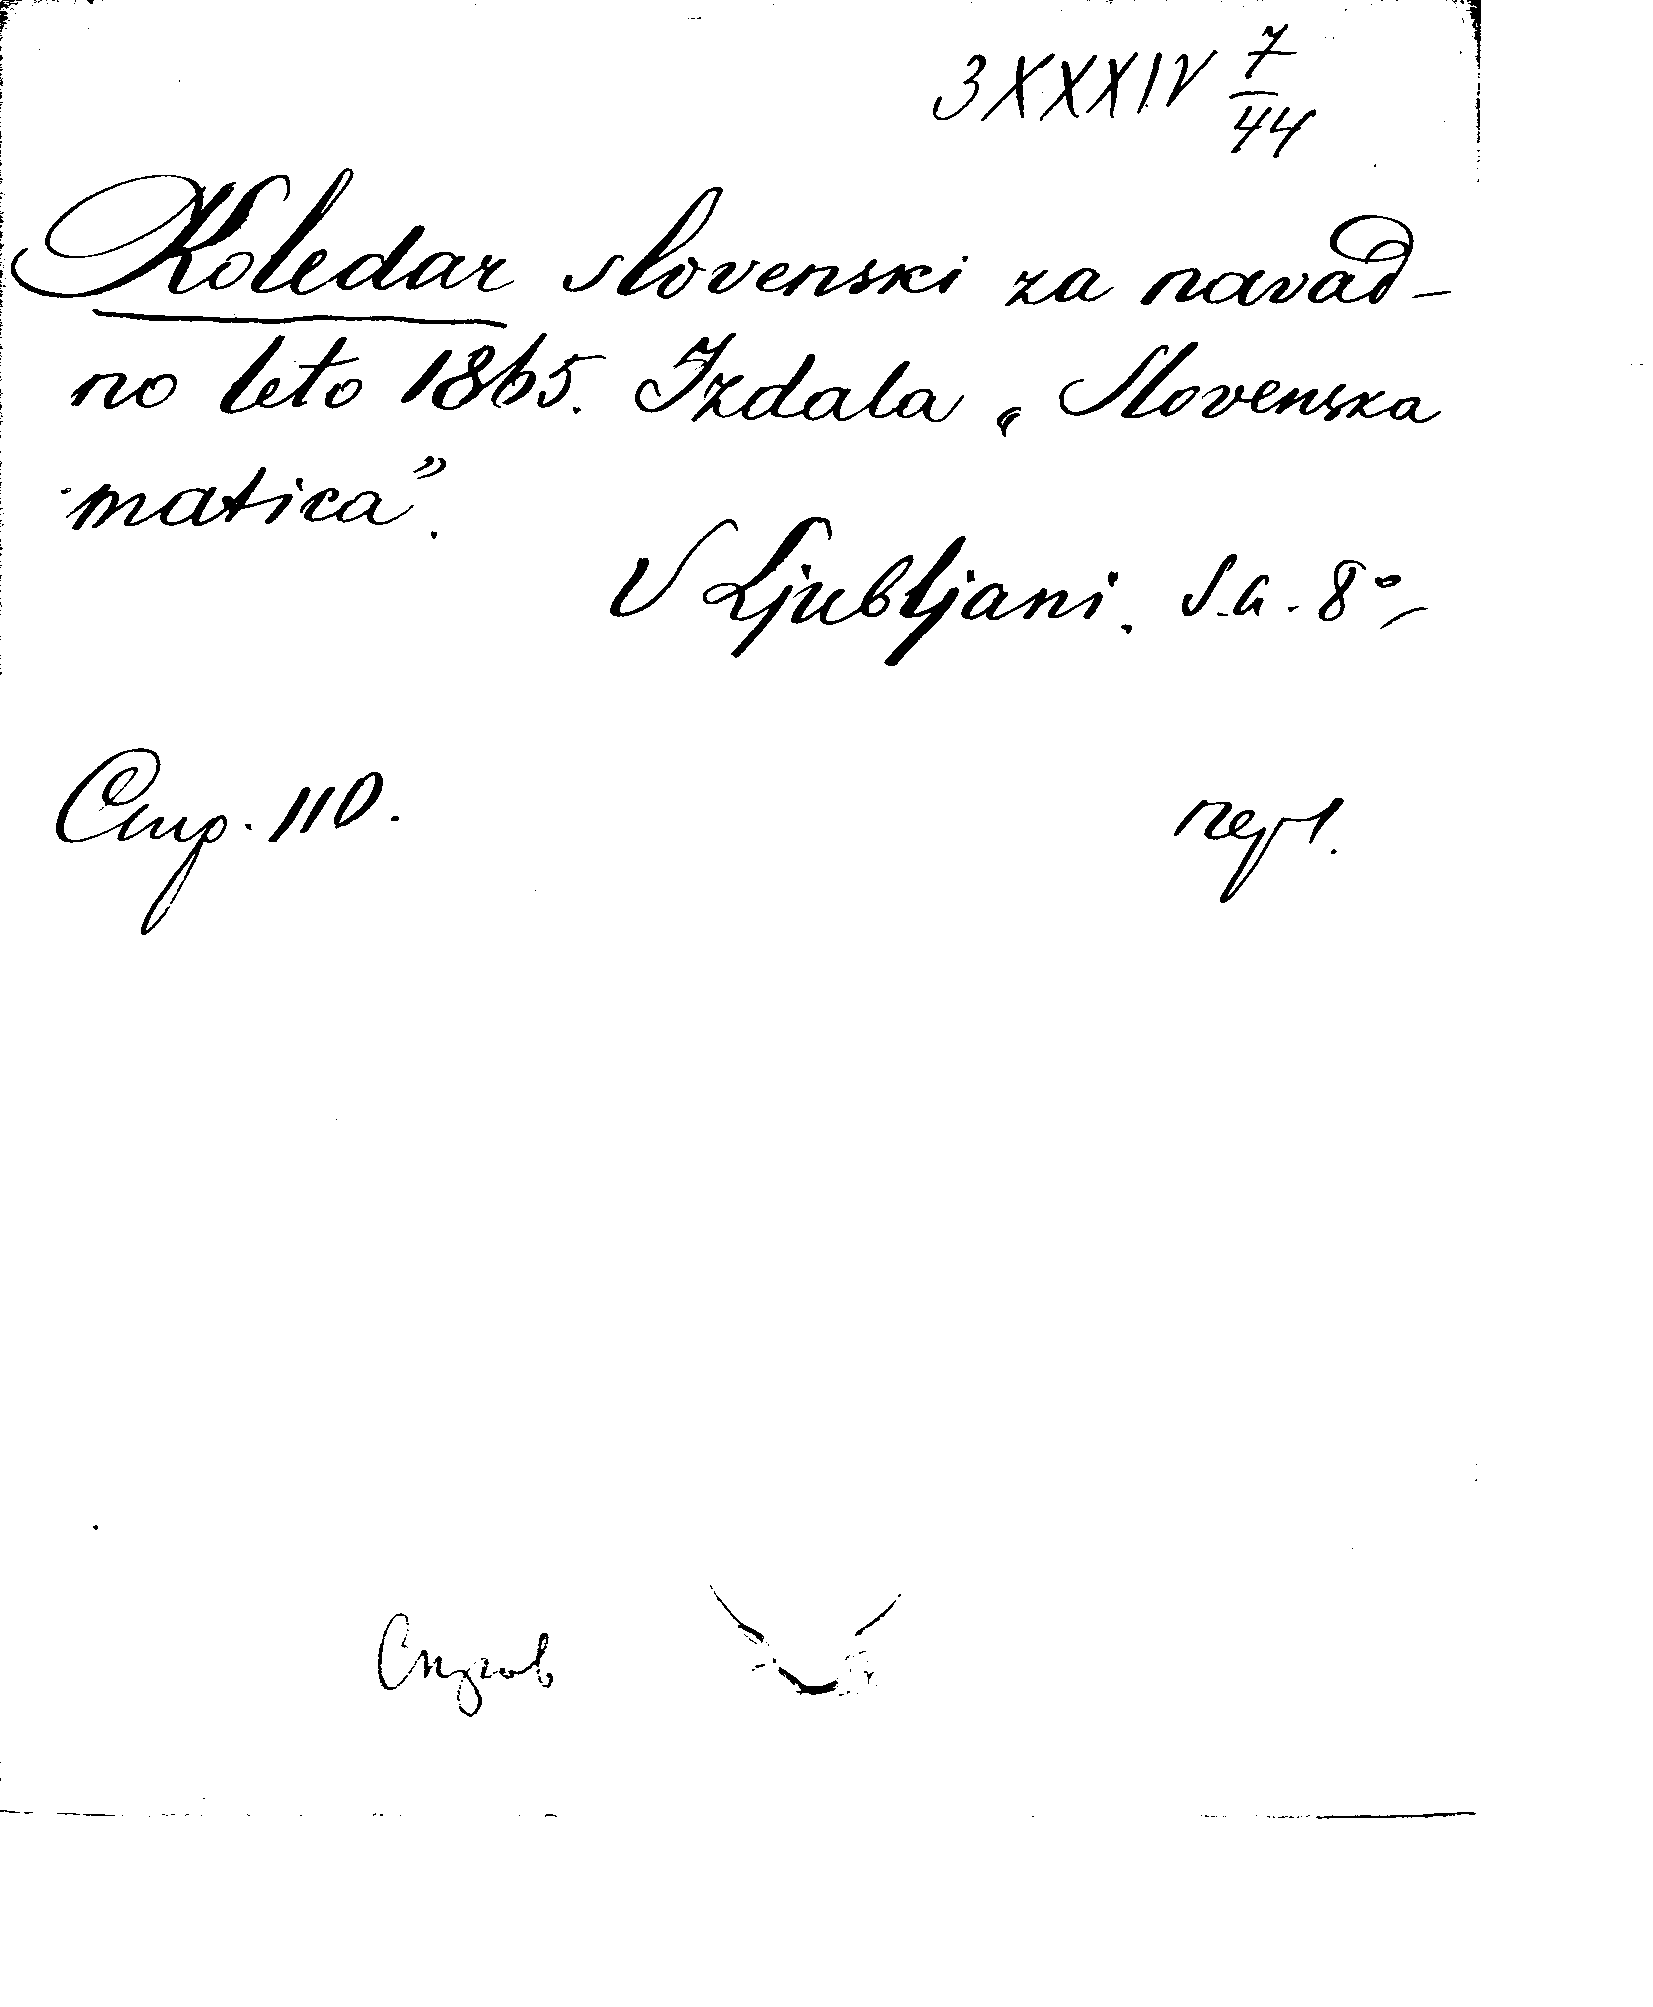 3 XXXIV 7/44
Koledar slovenski za navad-
no leto 1865. Izdala „Slovenska
matica”.
V Ljubljani. S.a. 8°
Стр. 110.
перл.